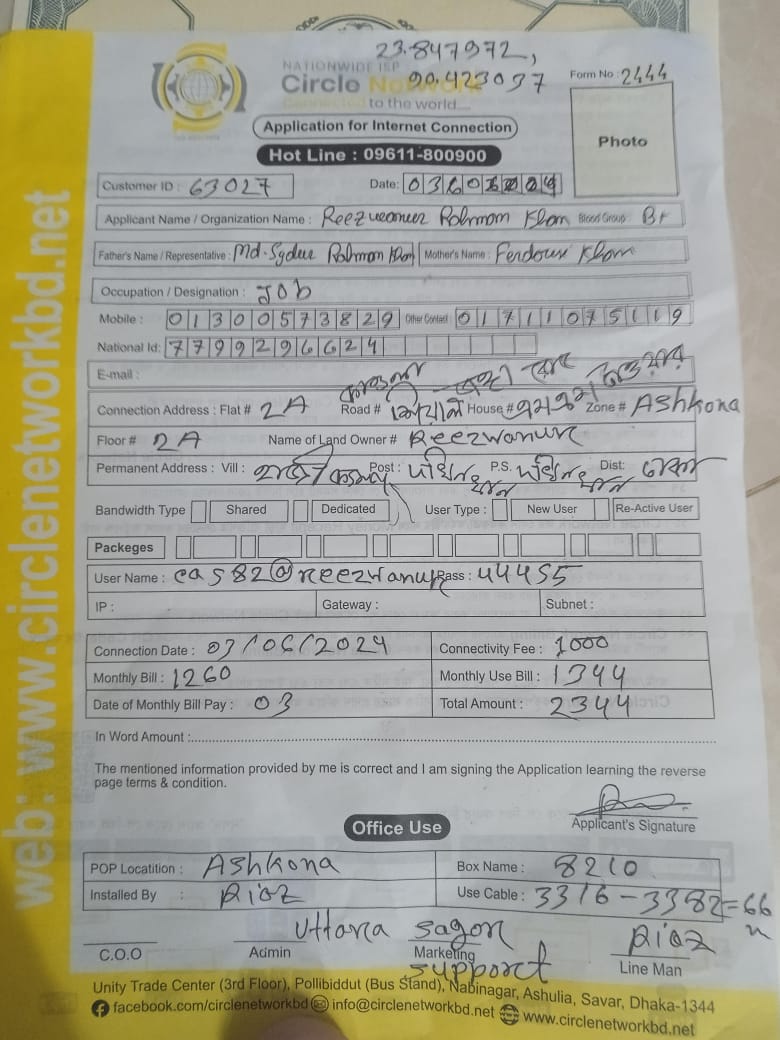 23.847972,
90.423037
NATIONWIDE ISP
Circle Network
Connected to the world....
Form No : 2444
Application for Internet Connection
Photo
Hot Line : 09611-800900
Customer ID : 63027 Date:
Applicant Name / Organization Name : Reezwanur Rahman Khan Blood Group B+
Father's Name / Representative : Md. Sydur Rahman Khan Mother's Name : Ferdousi Khan
Occupation / Designation : JOb
Mobile : 01300573829 Other Contact 01711075119
National Id: 7799296624
E-mail :
Connection Address : Flat # 2A Road # House # Zone # Ashkona
Floor # 2A Name of Land Owner # Reezwanur
Permanent Address : Vill : Post : P.S. Dist: ঢাকা
Bandwidth Type Shared Dedicated User Type : New User Re-Active User
Packeges
User Name : cas82@reezwanur Pass : 44455
IP : Gateway : Subnet :
Connection Date : 03/06/2024 Connectivity Fee : 1000
Monthly Bill : 1260 Monthly Use Bill : 1344
Date of Monthly Bill Pay : 03 Total Amount : 2344
In Word Amount :
The mentioned information provided by me is correct and I am signing the Application learning the reverse
page terms & condition.
Applicant's Signature
Office Use
POP Locatition : Ashkona Box Name : 8210
Installed By : Riaz Use Cable : 3316-3382=66
Uttara sagor Riaz
C.O.O Admin Marketing Line Man
support
Unity Trade Center (3rd Floor), Pollibiddut (Bus Stand), Nabinagar, Ashulia, Savar, Dhaka-1344
facebook.com/circlenetworkbd info@circlenetworkbd.net www.circlenetworkbd.net
web: www.circlenetworkbd.net